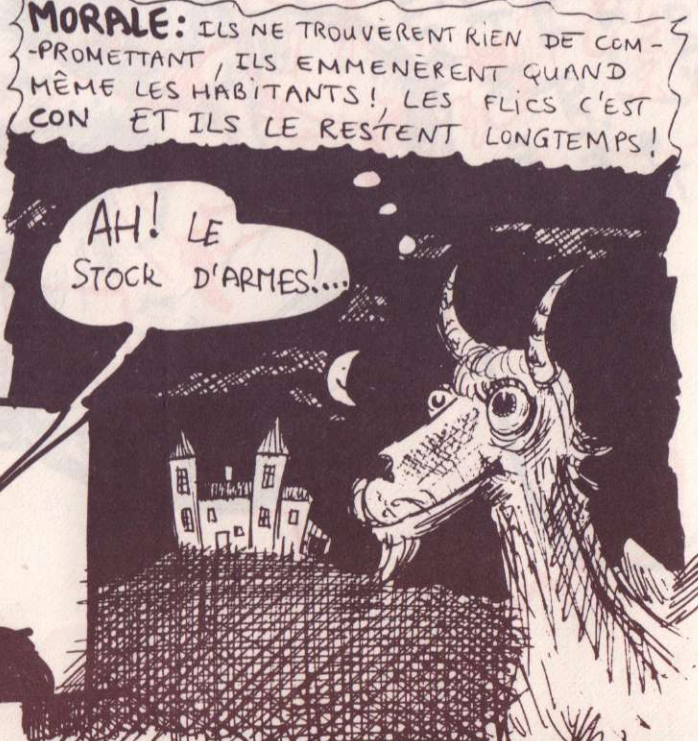 MORALE: ILS NE TROUVÈRENT RIEN DE COM-
-PROMETTANT, ILS EMMENÈRENT QUAND
MÊME LES HABITANTS!, LES FLICS C'EST
CON ET ILS LE RESTENT LONGTEMPS!
AH! LE
STOCK D'ARMES!...